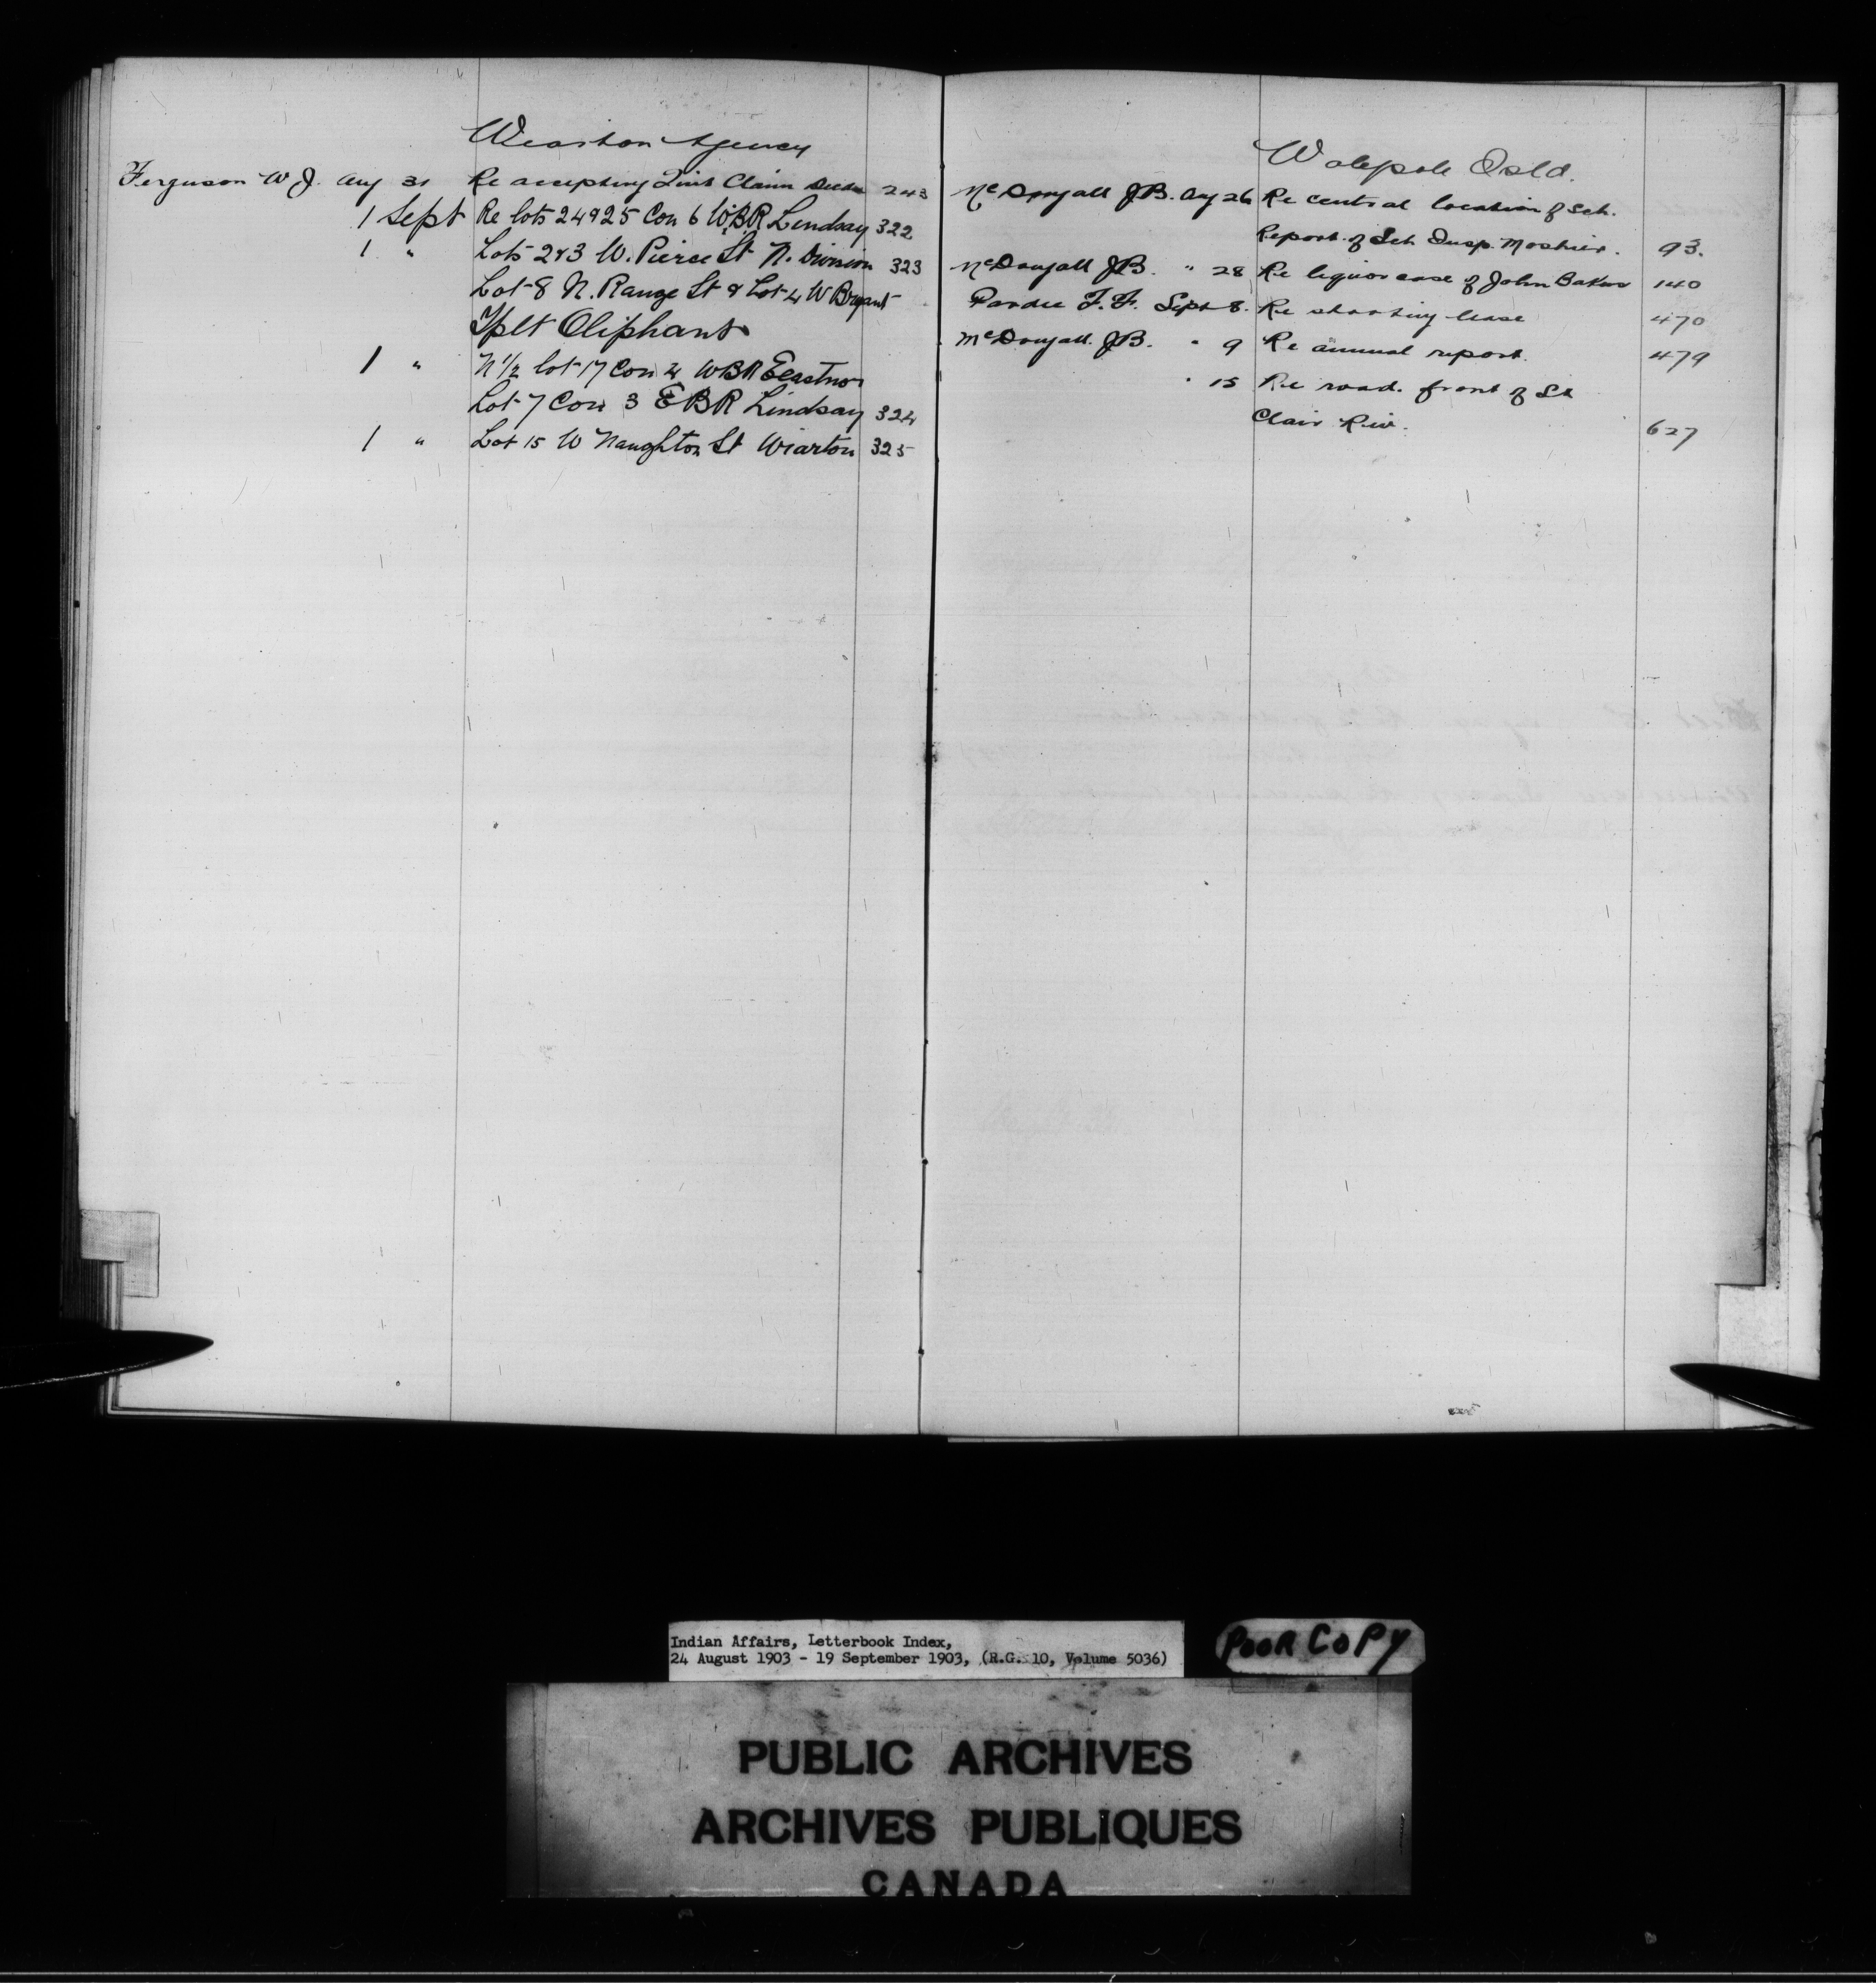 Wiarton Agency
Ferguson W J. Aug 31 Re accepting Quit Claim Deeds 243
1 Sept Re lots 24 & 25 Con 6 W.B.R. Lindsay 322
1 " Lots 2 & 3 W. Pierce St N. Division 323
Lot 8 N. Range St & Lot 4 W Bryant
Tplt Oliphant
1 " N 1/2 lot 17 Con 4 WBR Eastnor
Lot 7 Con 3 EBR Lindsay 324
1 " Lot 15 W Naughton St Wiarton 325
Walepole Isld.
McDougall JB. Aug 26 Re central location of Sch.
Report of Sch Insp. Moshier. 93.
McDougall JB. " 28 Re liquor case of John Baker 140
Pardee F. F. Sept 8. Re shooting lease 470
McDougall. JB. " 9 Re annual report. 479
" 15 Re road. front of St
Clair Riv. 627
Indian Affairs, Letterbook Index,
24 August 1903 - 19 September 1903, (R.G. 10, Volume 5036)
POOR COPY
PUBLIC ARCHIVES
ARCHIVES PUBLIQUES
CANADA